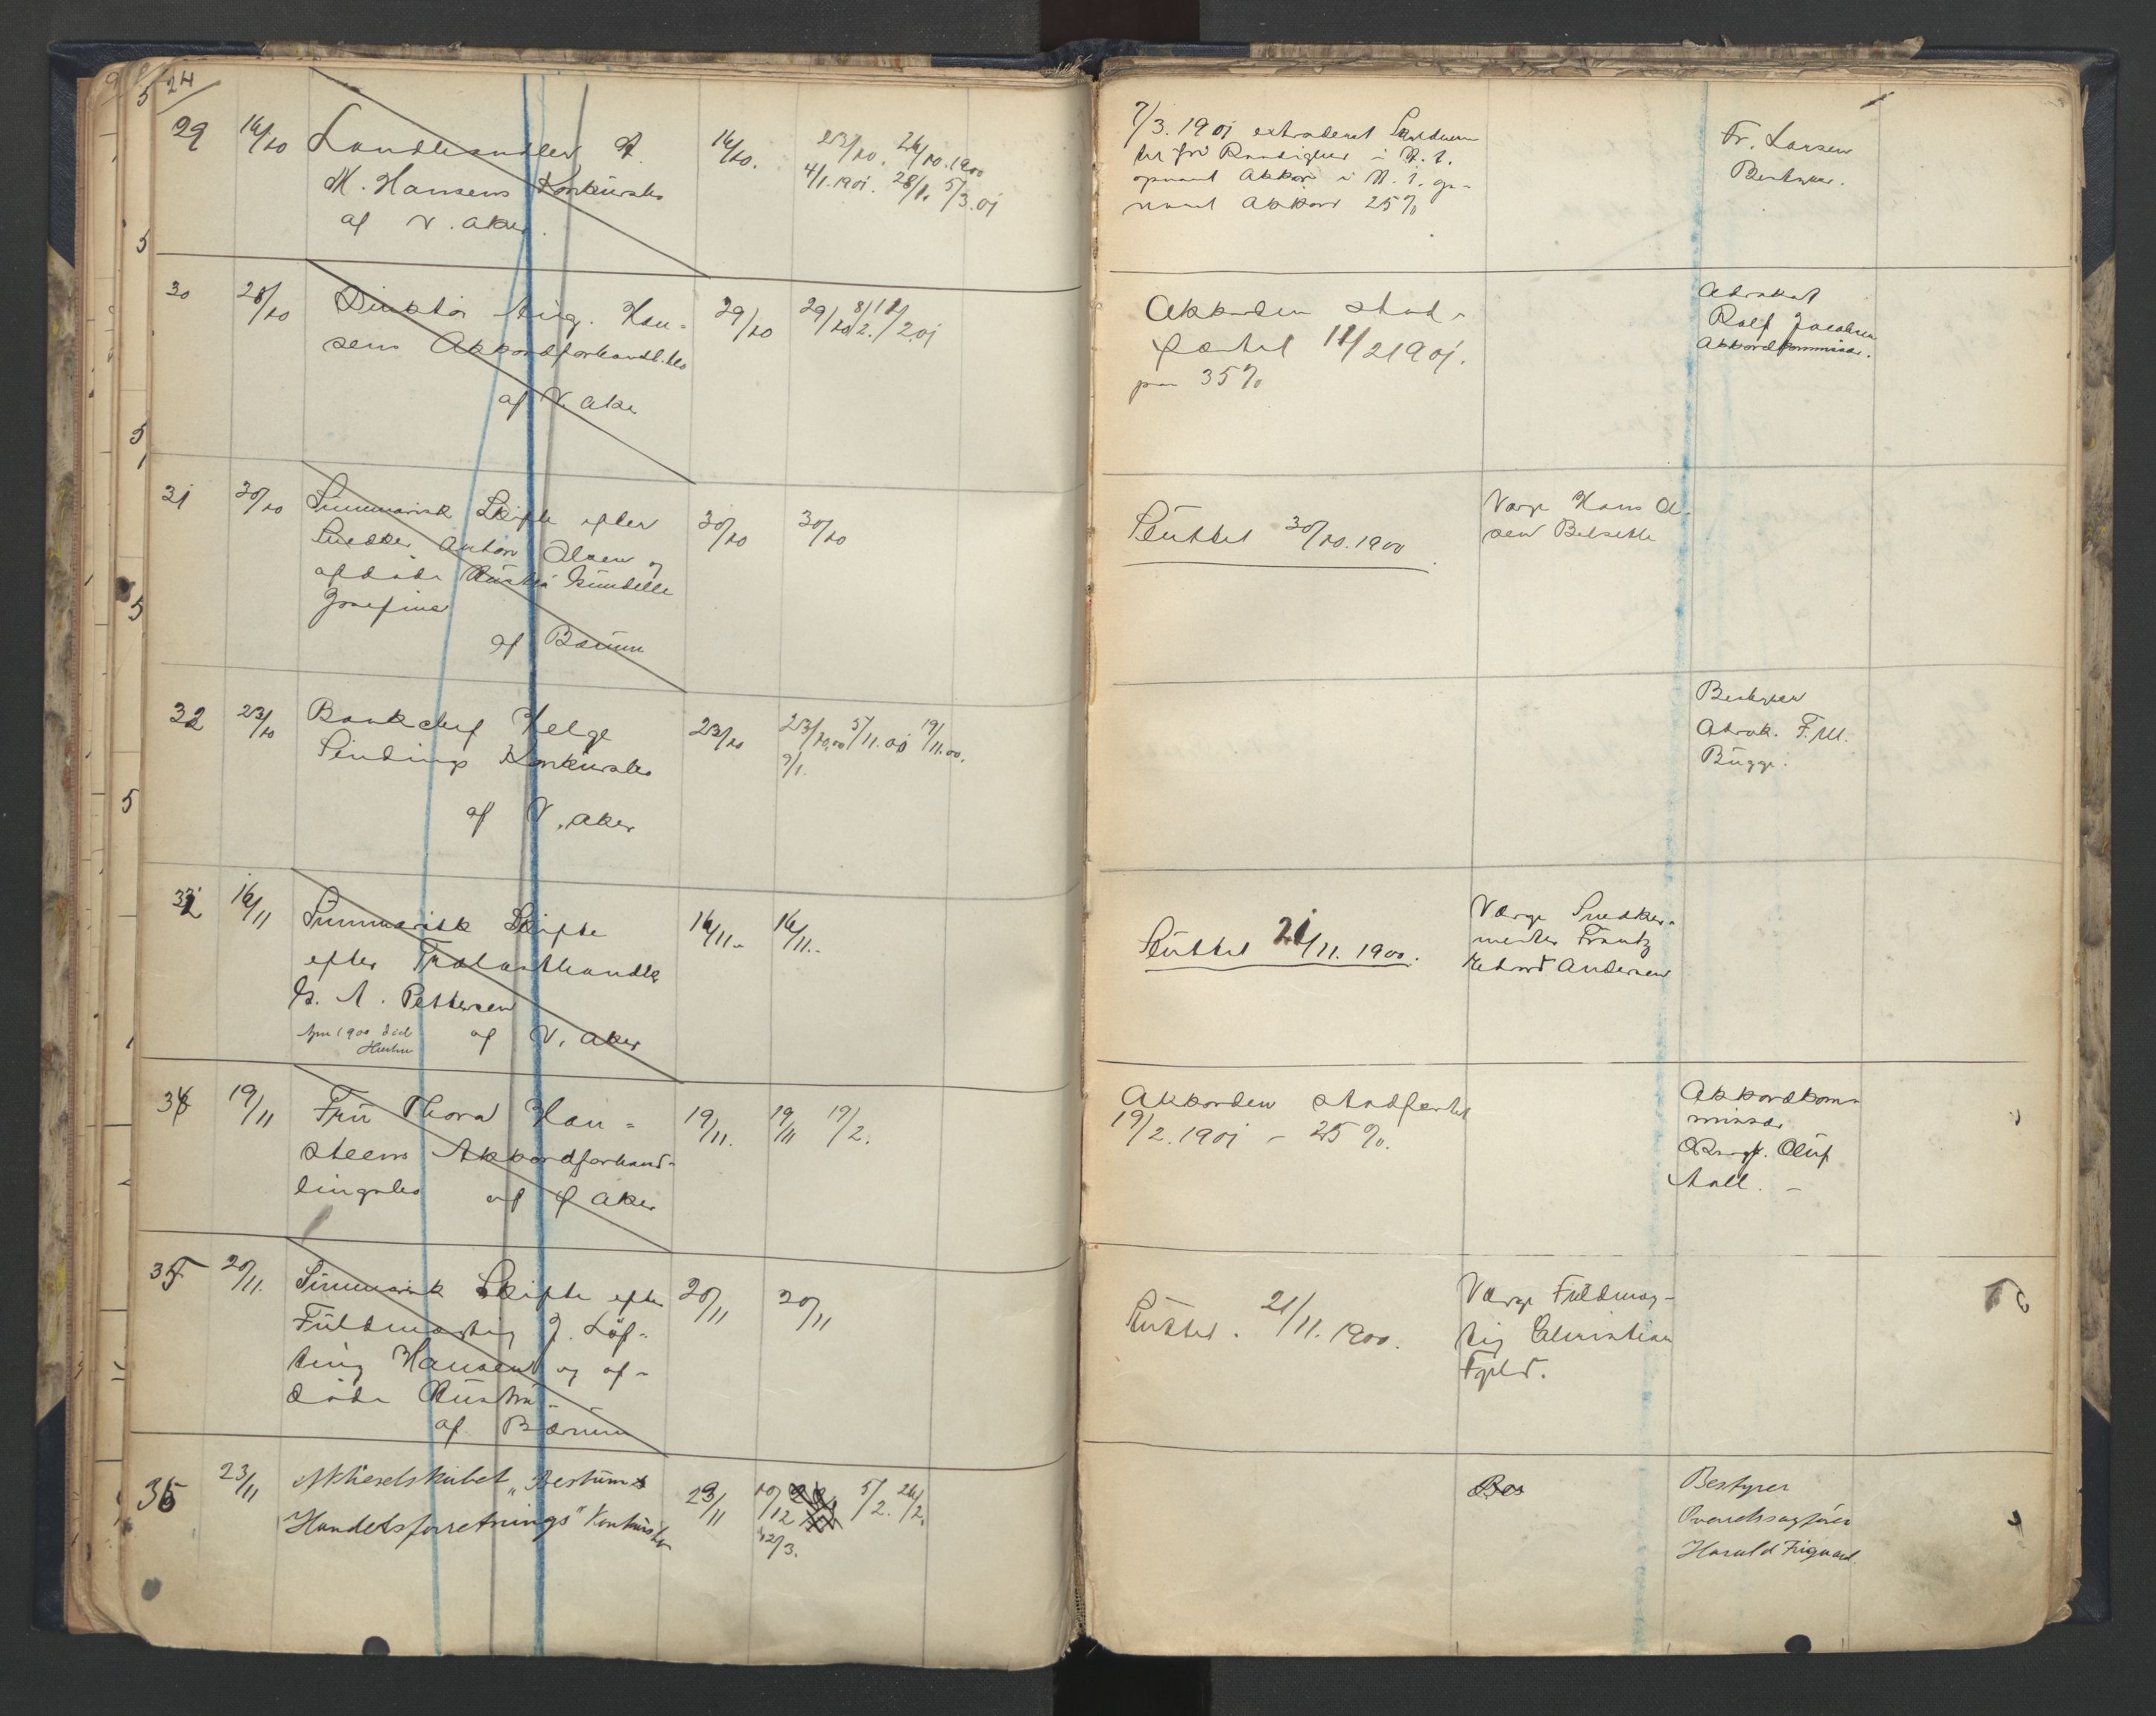 24
29 16/10 Landhandler A. 16/10. 23/10. 26/10.1900
M. Hansens Konkursbo 4/1.1901. 28/1. 5/3.01
af V. Aker.
7/3.1901 extraderet
til fri Raadighed i H. t.
opnaaet Akkor i H. t. op-
naaet Akkord 25%
Fr. Larsen
Bestyrer.
30 28/10 Direktør Aug. Han- 29/10 29/10 8/2. 11/2 01
sens Akkordforhandl.bo
af V. Aker
Akkorden stad-
fæstet 11/2 1901.
paa 35%
Advokat
Rolf Jacobsen
Akkordkommissær.
31 30/10 Summarisk Skifte efter 30/10 30/10
Snedker Anton Olsen og
afdøde Hustru Gunelle
Josefine
af Bærum
Sluttet 30/10.1900.
Værge Hans Ol-
sen Belsette
32 23/10 Bankchef Helge 23/10 23/10.00 5/11.00 19/11.00.
Sindings Konkursbo 9/1.
af V. Aker
Bestyrer
Advok. F. M.
Bügge.
33 16/11 Summarisk Skifte 16/11.- 16/11.-
efter Trælasthandler
G. A. Pettersen
1900 død
Hustru af V. Aker
Sluttet 21/11.1900.
Værge Snedker-
mester Frantz
Edvard Andersen
34 19/11 Fru Thora Han- 19/11. 19/11 19/2.
steens Akkordforhand-
lingsbo af Ø Aker
Akkorden stadfæstet
19/2.1901 - 25%.
Akkordkom-
missær
Oluf
Aall. -
35 20/11. Summarisk Skifte efter 20/11 20/11
Fuldmægtig J. Løf-
ting Hansen og af-
døde Hustru
af Bærum
Sluttet. 21/11.1900.
Værge Fuldmæg-
tig Christian
Fyld.
36 23/11 Aktieselskabet „Bestums 23/11 10/12 5/2. 26/2.
Handelsforretnings" Konkursbo 12/3.
Bes
Bestyrer
Overretssagfører
Harald Frigaard.